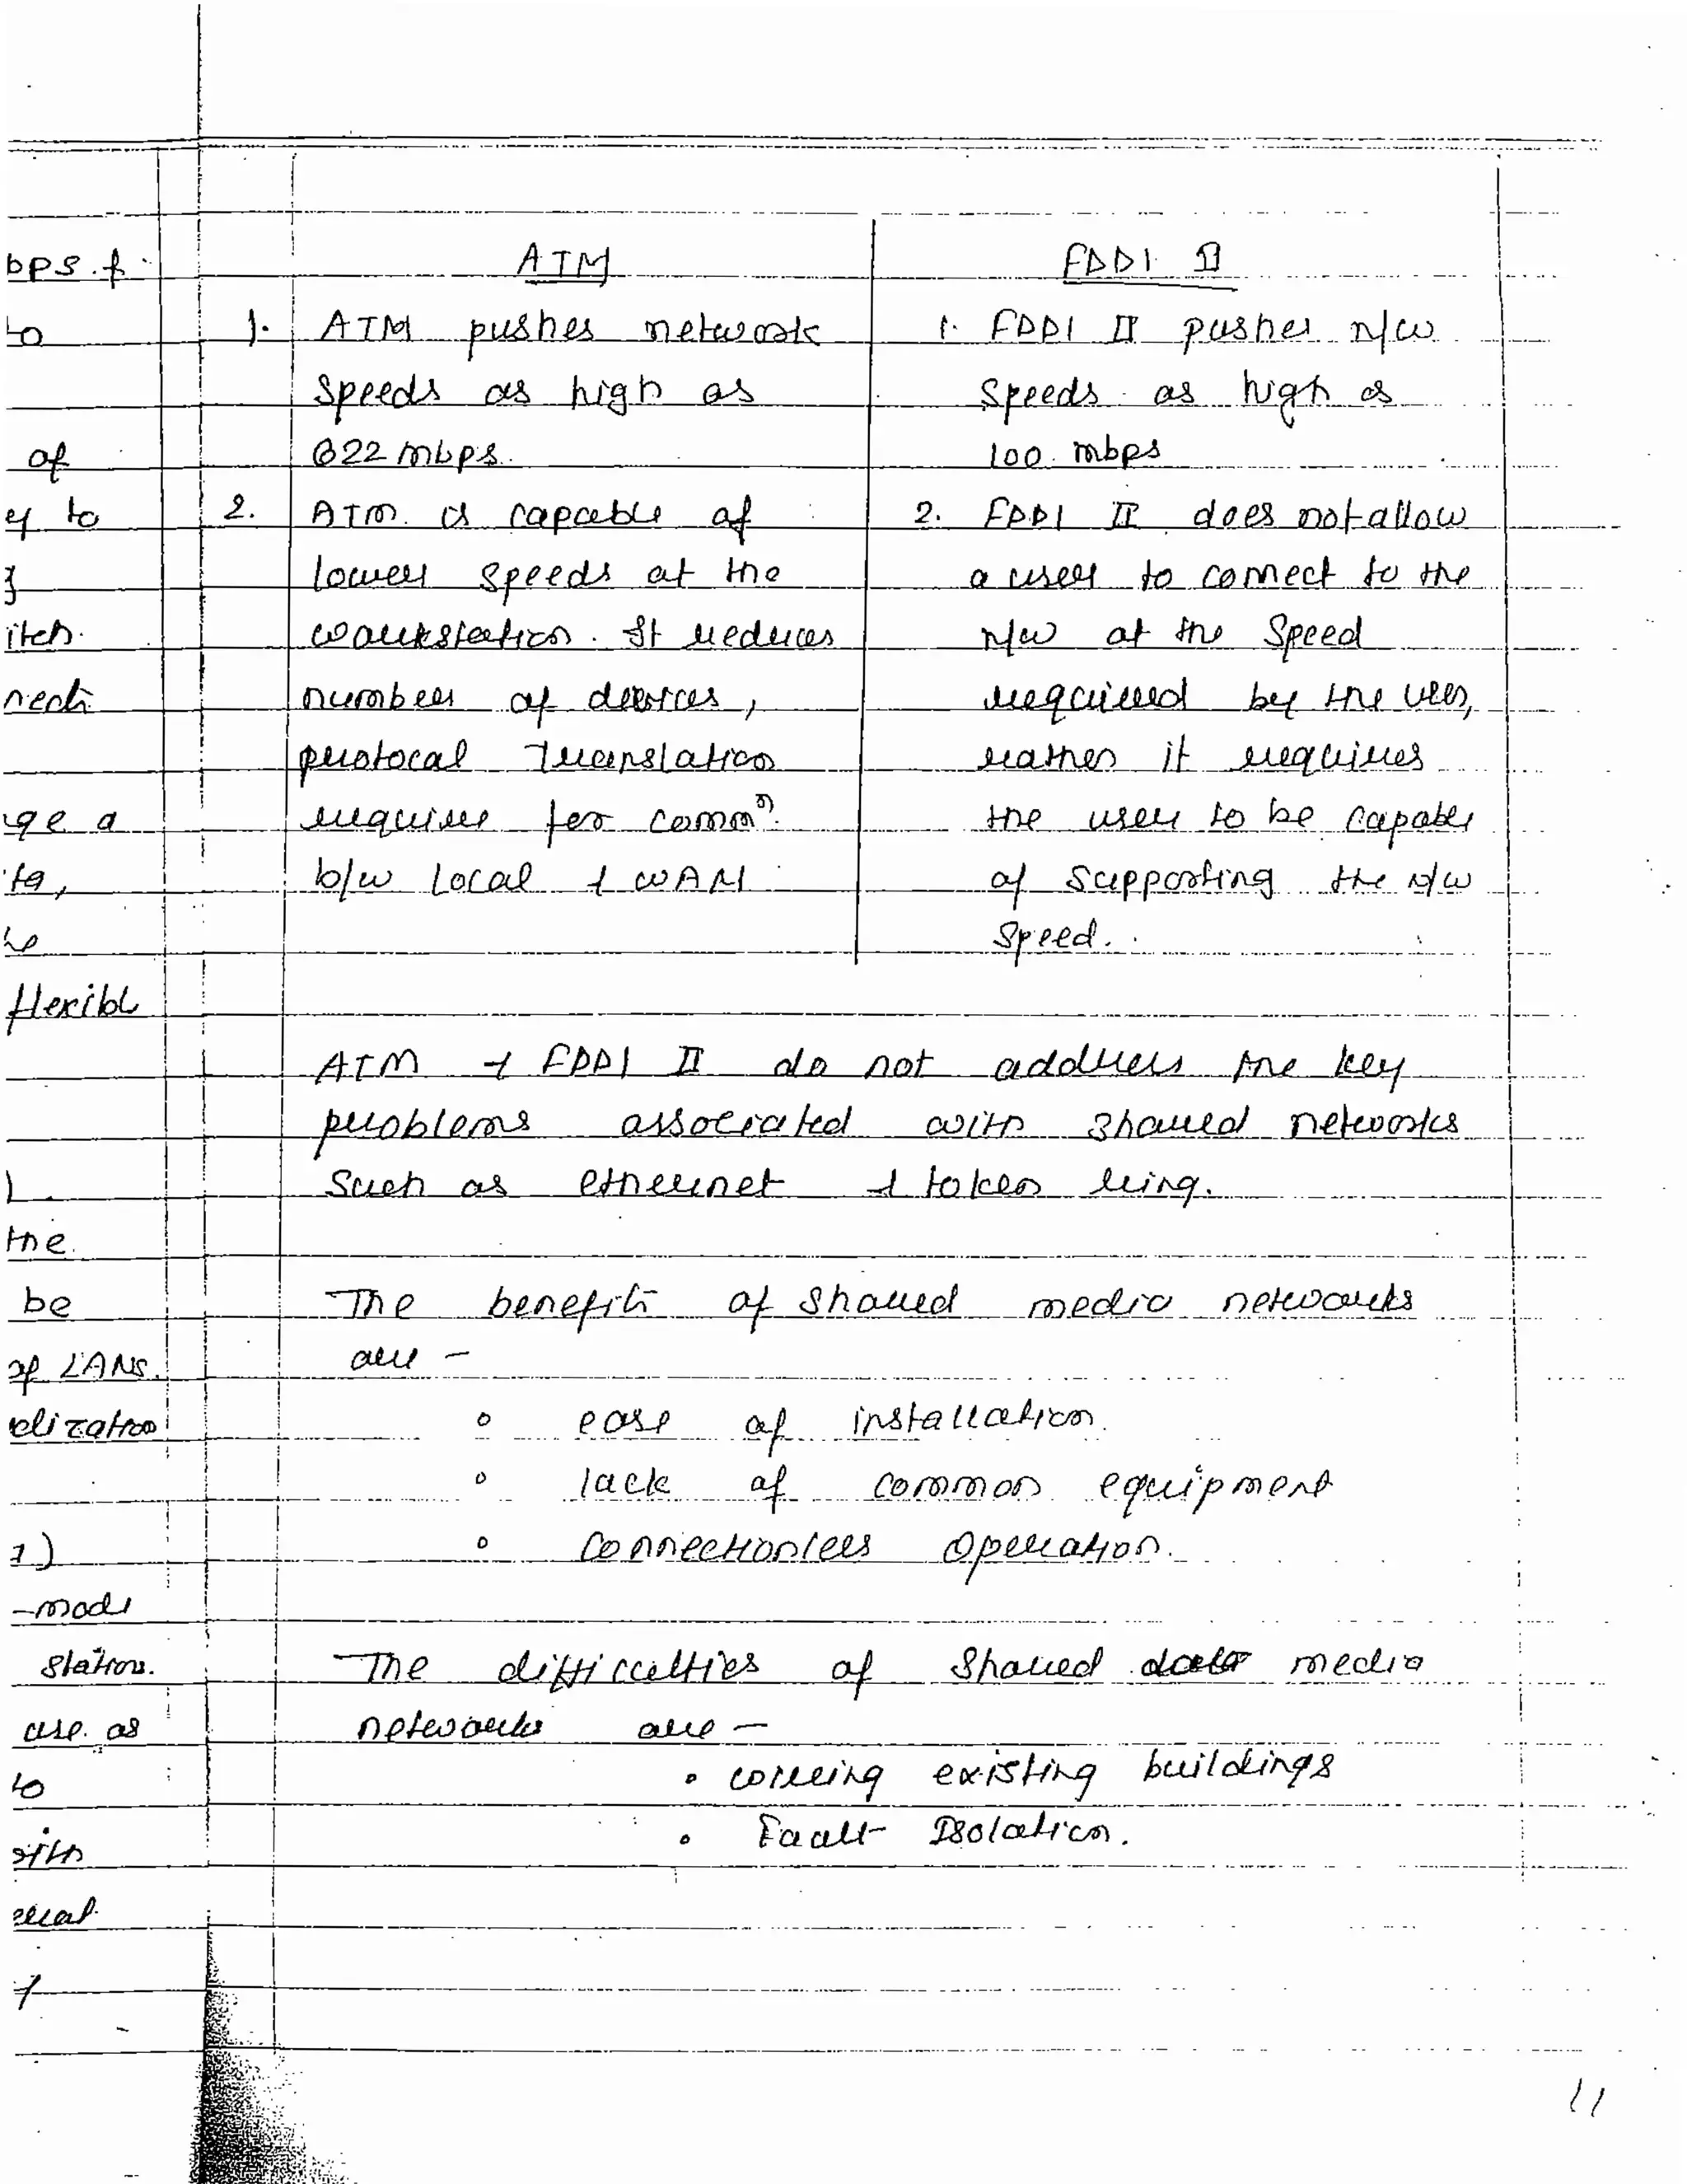 ATM
FDDI II
1. ATM pushes network
speeds as high as
622 mbps.
2. ATM is capable of
lower speeds at the
workstation. It reduces
number of devices,
protocal Translation
require for commⁿ.
b/w local & WAN
1. FDDI II pushes n/w
speeds as high as
100 mbps
2. FDDI II does not allow
a user to connect to the
n/w at the speed
required by the user,
rather it requires
the user to be capable
of supporting the n/w
speed.
ATM & FDDI II do not address the key
problems associated with shared networks
such as ethernet & token ring.
The benefits of shared media networks
are -
ease of installation.
lack of common equipment
connectionless operation.
The difficulties of shared media
networks are -
wiring existing buildings
Fault Isolation.
bps. &
to
of
to
itch.
ge a
ta,
flexibl
the
be
of LANs.
1)
-mode
station.
use as
to
11